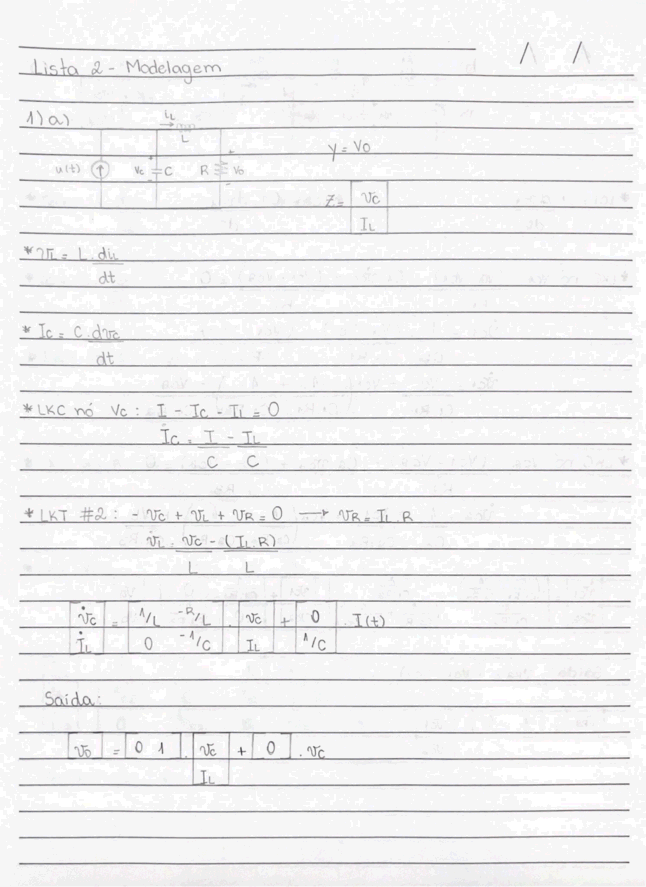 Lista 2 - Modelagem / /
1) a)
iL
L
u(t) Vc C R Vo
y = Vo
Z = [Vc
IL]
* VL = L . diL
dt
* Ic = C . dvc
dt
* LKC nó Vc : I - Ic - IL = 0
İc = I - IL
C C
* LKT #2 : - Vc + VL + VR = 0 → VR = IL . R
VL = Vc - (IL.R)
L L
[V̇c = [1/L -R/L . [Vc + [0 . I(t)
İL] 0 -1/C] IL] 1/C]
Saída:
[Vo] = [0 1] . [Vc + [0] . Vc
IL]